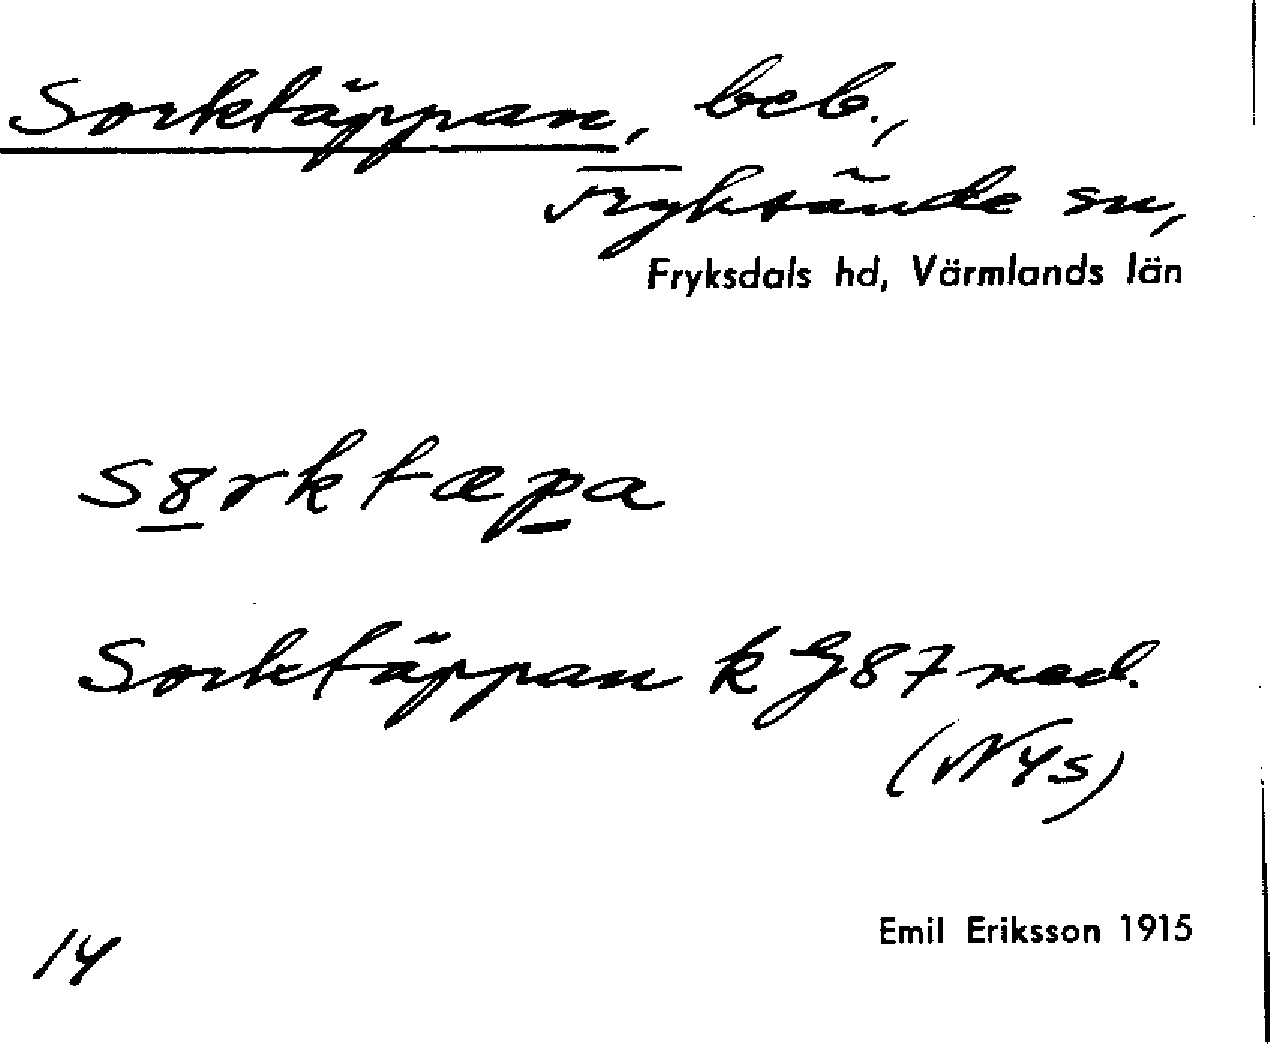 Sorktäppan, beb.,
Fryksände sn,
Fryksdals hd, Värmlands län
s8rktæpa
Sorktäppan k G87 ned.
(NYs)
14
Emil Eriksson 1915